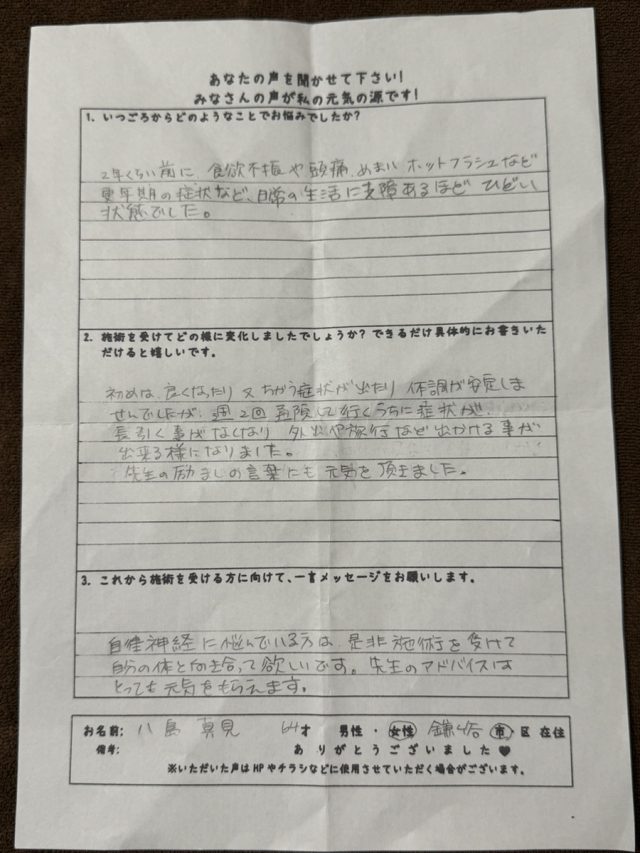 あなたの声を聞かせて下さい!
みなさんの声が私の元気の源です!
1. いつごろからどのようなことでお悩みでしたか?
2年くらい前に、食欲不振や頭痛、めまい、ホットフラシュなど
更年期の症状など、日常の生活に支障あるほど ひどい
状態でした。
2. 施術を受けてどの様に変化しましたでしょうか? できるだけ具体的にお書きいた
だけると嬉しいです。
初めは、良くなったり 又 ちがう症状が出たり 体調が安定しま
せんでしたが、週2回 して行くうちに症状が
長引く事がなくなり 外出や旅行など出かける事が
出来る様になりました。
先生の励ましの言葉にも 元気を頂きました。
3. これから施術を受ける方に向けて、一言メッセージをお願いします。
自律神経に悩んでいる方は、是非施術を受けて
自分の体と向き合って欲しいです。先生のアドバイスは
とっても元気をもらえます。
お名前: 八島 真見 64才 男性・女性 鎌ヶ谷 市・区 在住
備考: ありがとうございました♥
※いただいた声はHPやチラシなどに使用させていただく場合がございます。